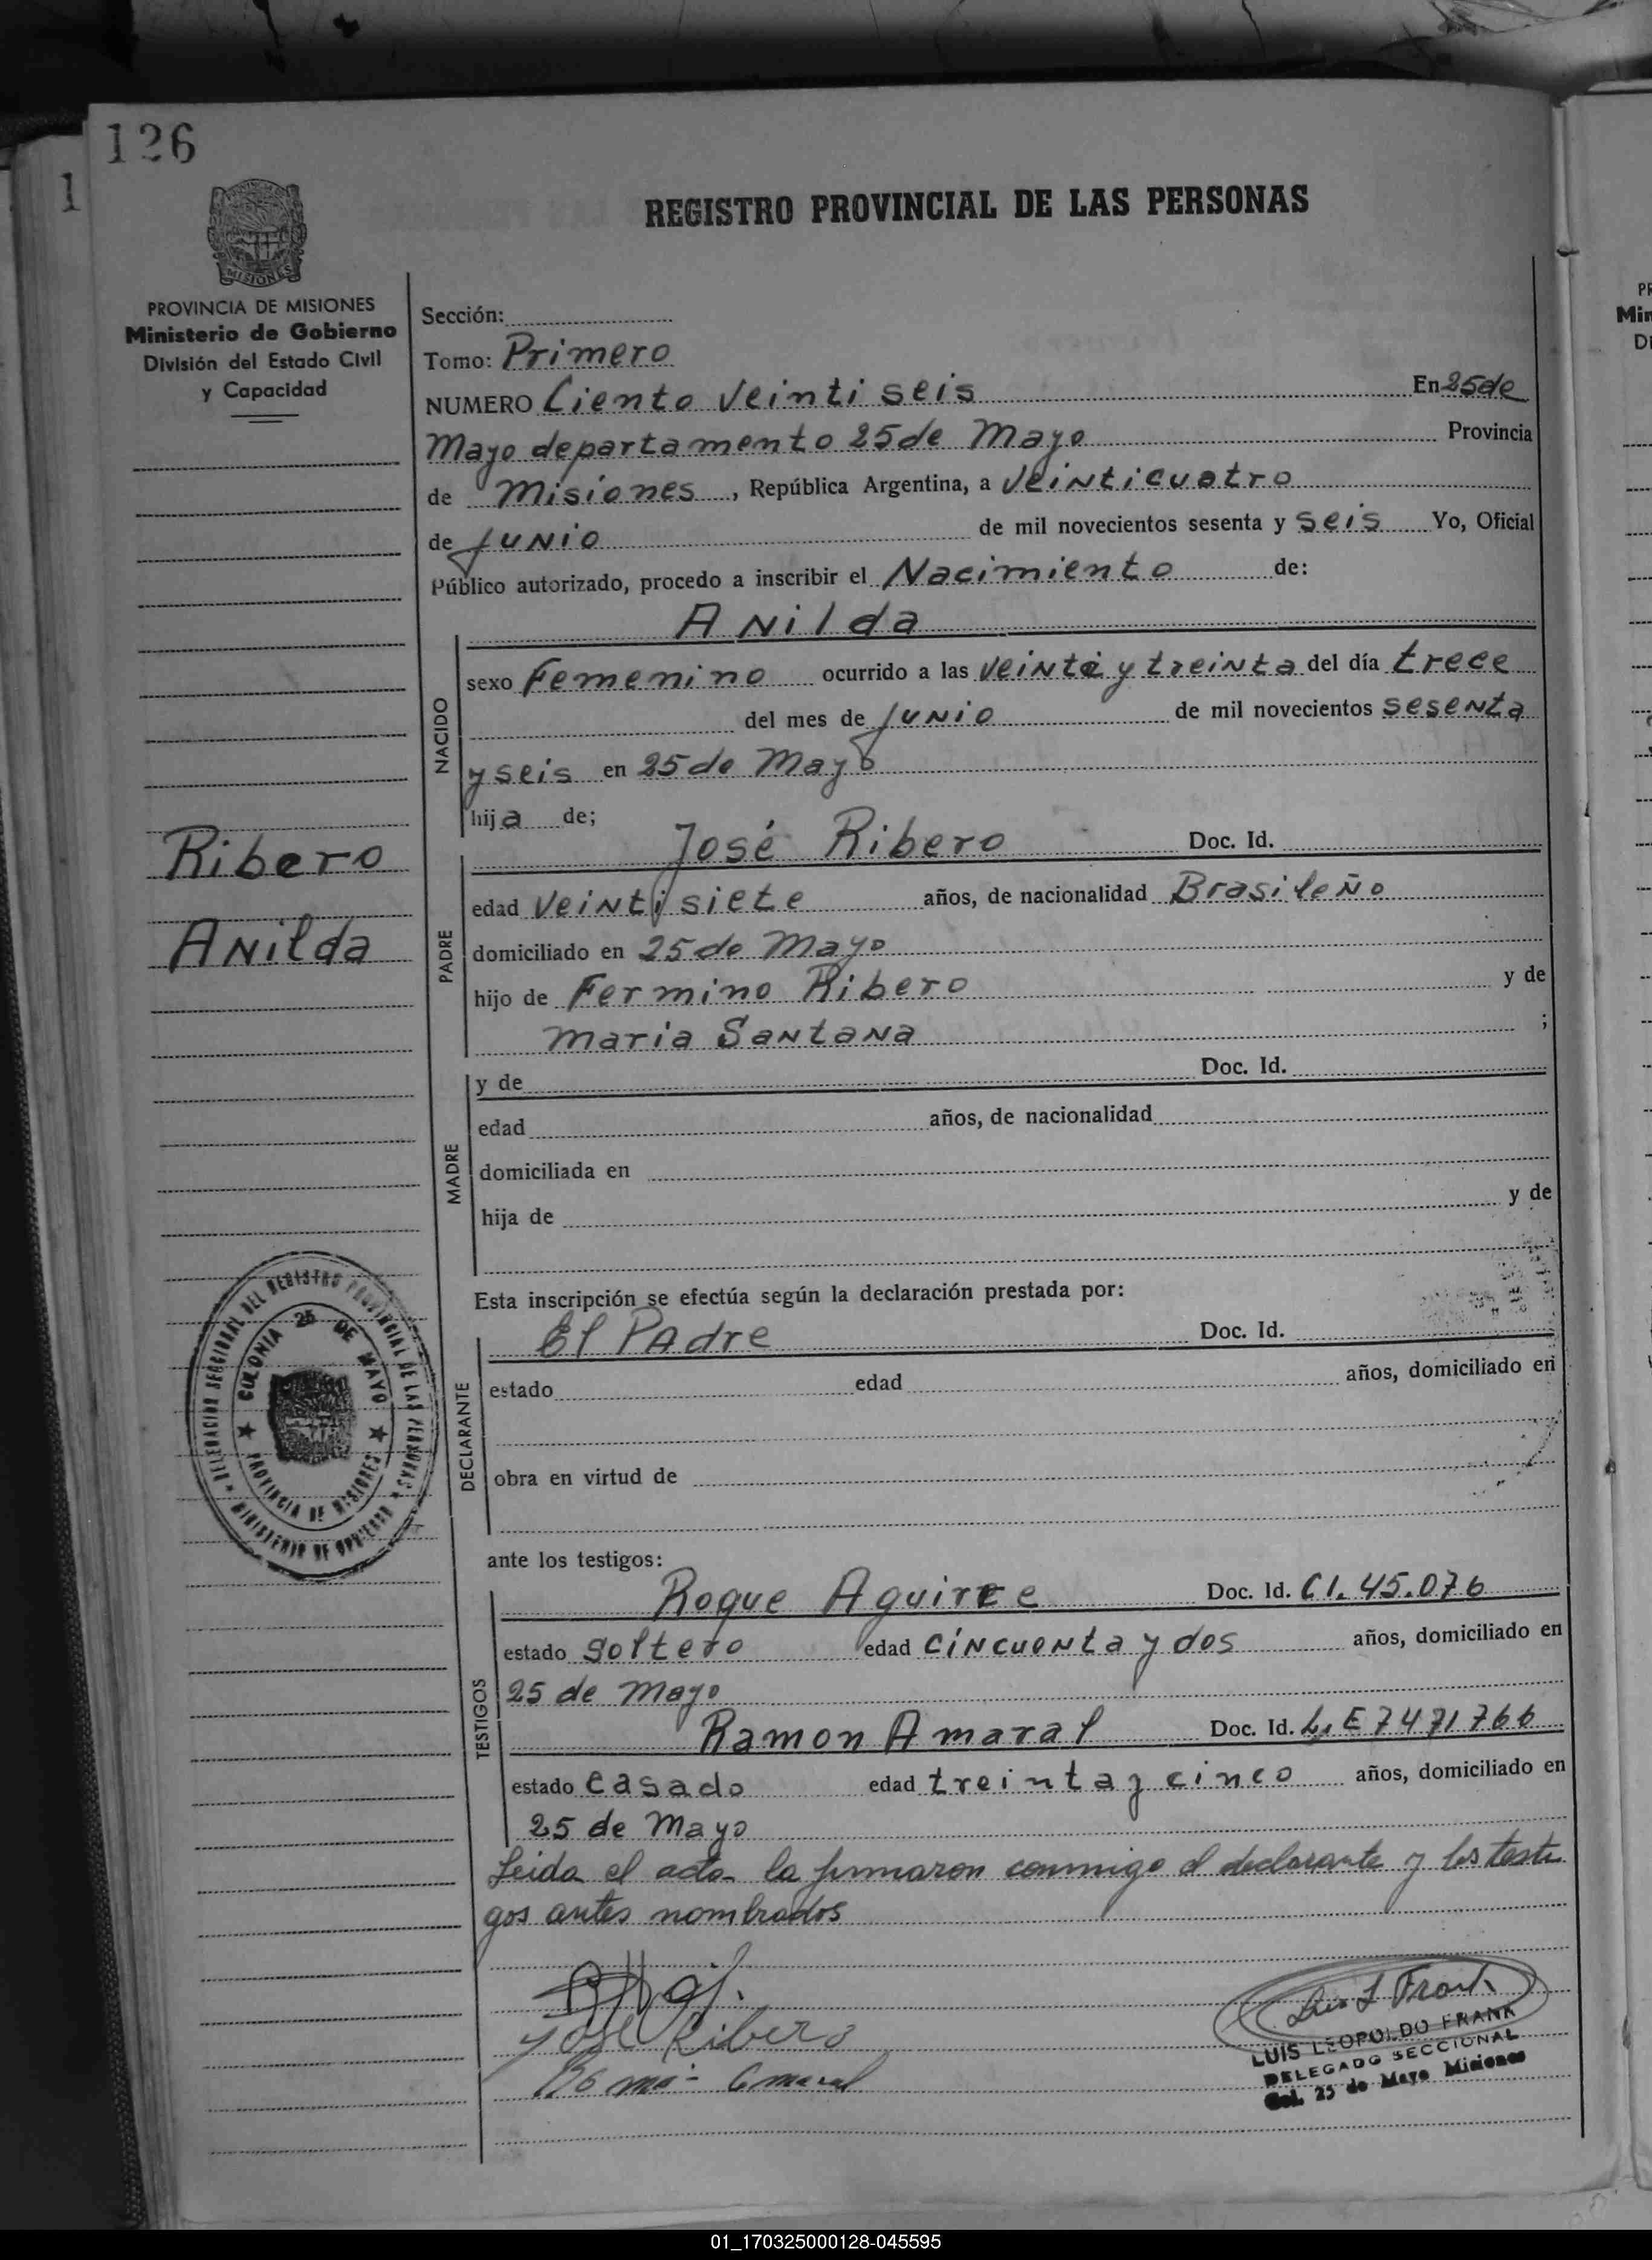 126
1
REGISTRO PROVINCIAL DE LAS PERSONAS
MISIONES
PROVINCIA DE MISIONES
Ministerio de Gobierno
División del Estado Civil
y Capacidad
Sección:
Tomo: Primero
NUMERO Ciento Veinti seis En 25 de
Mayo departamento 25 de Mayo Provincia
de Misiones, República Argentina, a Veinticuatro
de Junio de mil novecientos sesenta y seis Yo, Oficial
Público autorizado, procedo a inscribir el Nacimiento de:
Anilda
NACIDO
sexo Femenino ocurrido a las veinte y treinta del día trece
del mes de Junio de mil novecientos sesenta
y seis en 25 de Mayo
hija de;
José Ribero Doc. Id.
Ribero
Anilda
PADRE
edad Veinti siete años, de nacionalidad Brasileño
domiciliado en 25 de Mayo
hijo de Fermino Ribero y de
Maria Santana ;
MADRE
y de Doc. Id.
edad años, de nacionalidad
domiciliada en
hija de y de
Esta inscripción se efectúa según la declaración prestada por:
DECLARANTE
El Padre Doc. Id.
estado edad años, domiciliado en
obra en virtud de
DELEGACION SECCIONAL DEL REGISTRO PROVINCIAL DE LAS PERSONAS
MINISTERIO DE GOBIERNO
COLONIA 25 DE MAYO
PROVINCIA DE MISIONES
ante los testigos:
TESTIGOS
Roque Aguirre Doc. Id. CI. 45.076
estado Soltero edad Cincuenta y dos años, domiciliado en
25 de Mayo
Ramon Amaral Doc. Id. L.E 7471766
estado Casado edad treinta y cinco años, domiciliado en
25 de Mayo
Leida el acta la firmaron conmigo el declarante y los testi
gos antes nombrados
José Ribero
Luis L Frank
LUIS LEOPOLDO FRANK
DELEGADO SECCIONAL
Col. 25 de Mayo Misiones
01_170325000128-045595